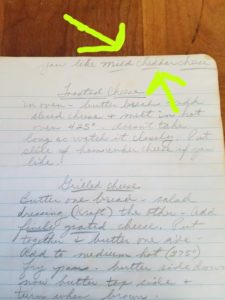 you like mild cheddar cheese
Toasted Cheese
in oven - butter bread - add
sliced cheese & melt in hot
oven 425° - doesn't take
long so watch it closely. Put
slice of ham under cheese if you
like.
Grilled cheese
Butter one bread - salad
dressing (Kraft) the other - add
finely grated cheese. Put
together & butter one side -
Add to medium hot (375°)
fry pan - butter side down
now butter top side &
turn when brown.